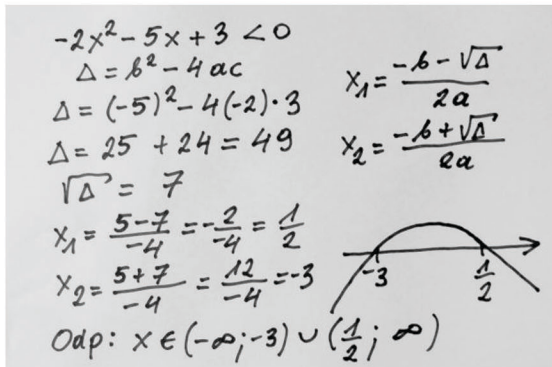 -2x² - 5x + 3 < 0
Δ = b² - 4ac
Δ = (-5)² - 4(-2)·3
Δ = 25 + 24 = 49
√Δ = 7
x₁ = (5-7)/(-4) = (-2)/(-4) = 1/2
x₂ = (5+7)/(-4) = 12/(-4) = -3
x₁ = (-b - √Δ)/(2a)
x₂ = (-b + √Δ)/(2a)
-3 1/2
Odp: x ∈ (-∞; -3) ∪ (1/2; ∞)